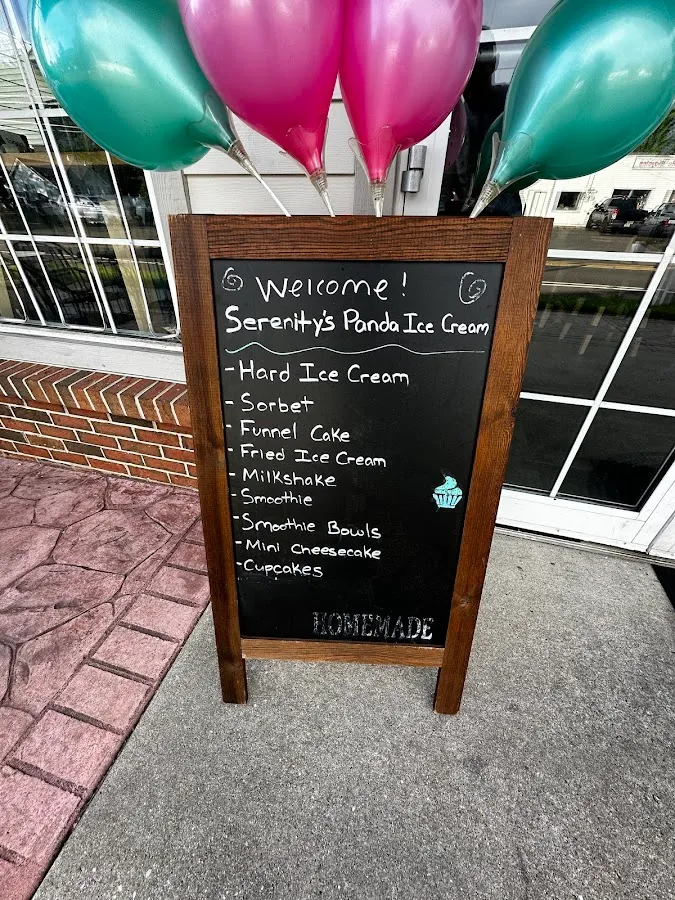 Welcome!
Serenity's Panda Ice Cream
- Hard Ice Cream
- Sorbet
- Funnel Cake
- Fried Ice Cream
- Milkshake
- Smoothie
- Smoothie Bowls
- Mini Cheesecake
- Cupcakes
HOMEMADE